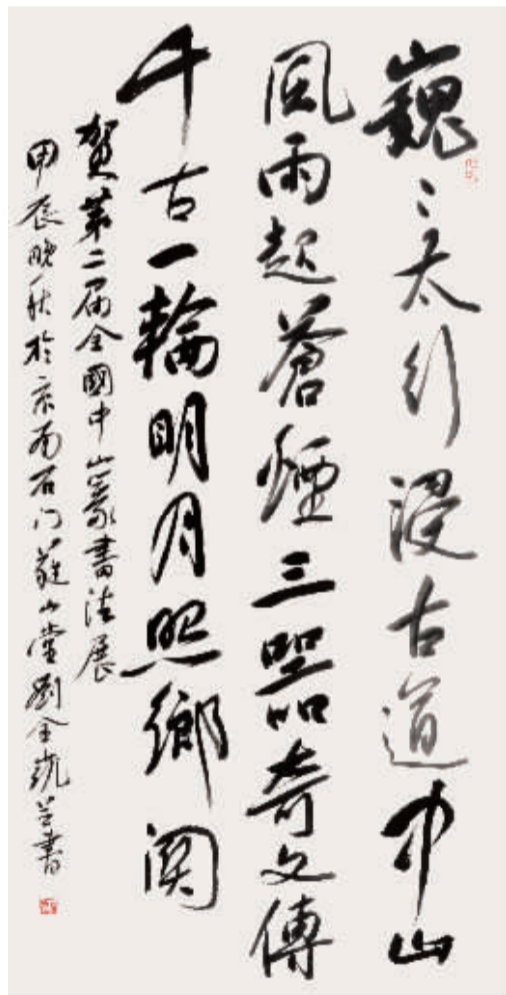 巍〻太行浸古道中山
風雨起蒼煙三器奇文傳
千古一輪明月照鄉関
賀第二届全國中山篆書法展
甲辰晚秋於京南石门蕹山堂劉全洗並書